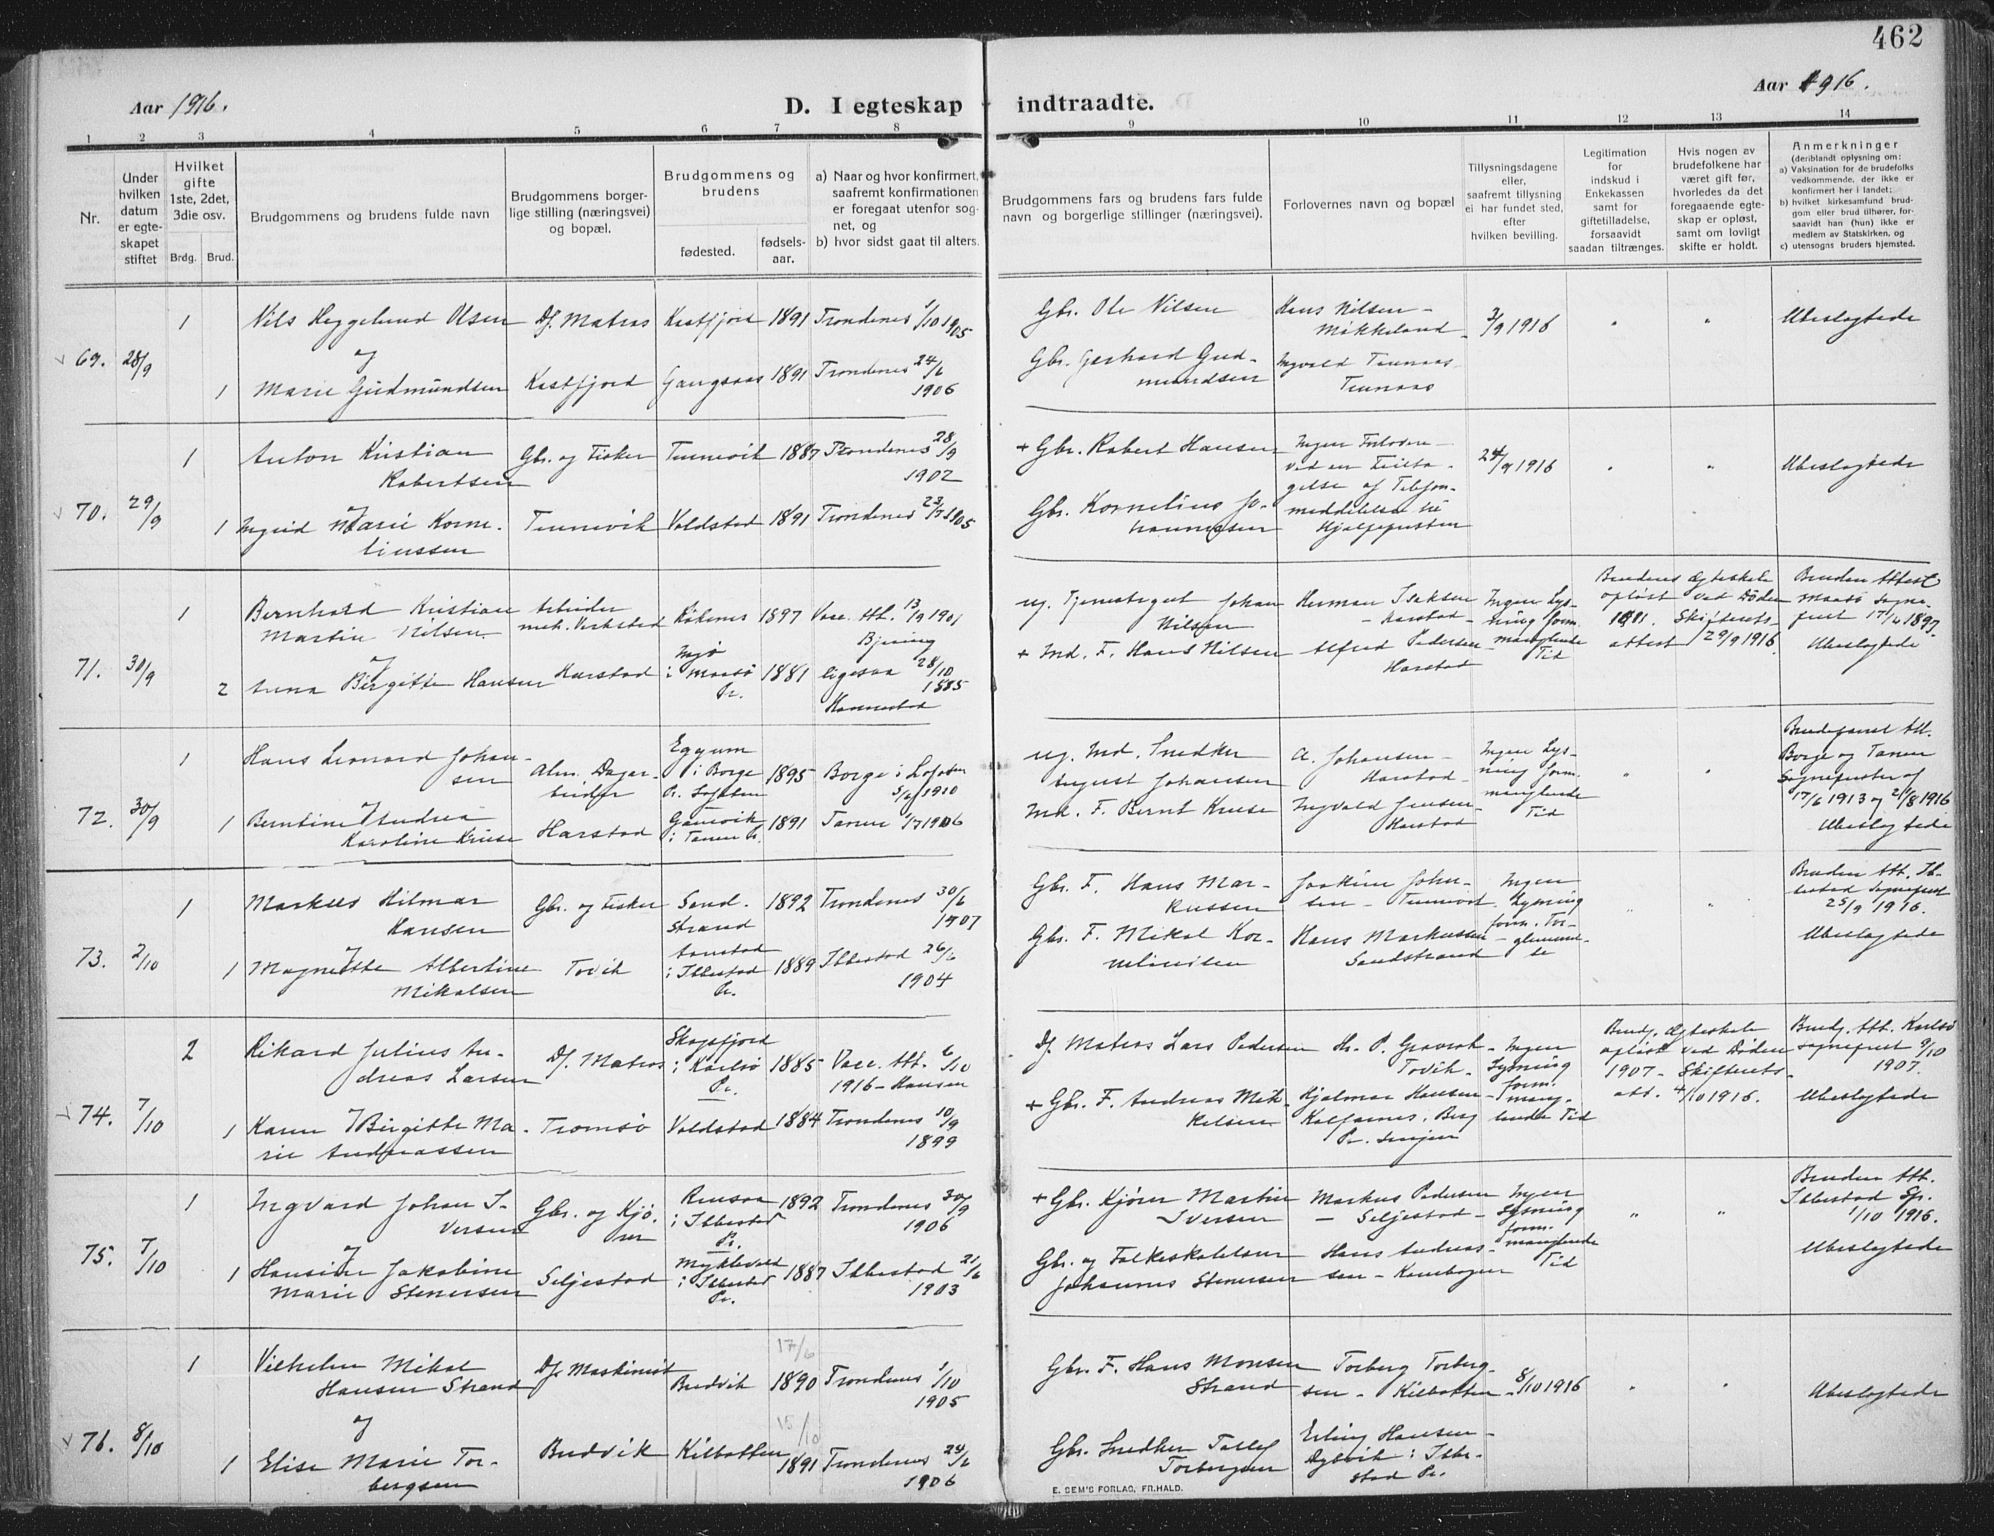 462
Aar 1916.
D. I egteskap indtraadte.
Aar 1916.
1 2 3 4 5 6 7 8 9 10 11 12 13 14
Nr.
Under hvilken datum er egteskapet stiftet
Hvilket gifte 1ste, 2det, 3die osv.
Brdg. Brud.
Brudgommens og brudens fulde navn
Brudgommens borgerlige stilling (næringsvei) og bopæl.
Brudgommens og brudens
fødested.
fødselsaar.
a) Naar og hvor konfirmert, saafremt konfirmationen er foregaat utenfor sognet, og
b) hvor sidst gaat til alters.
Brudgommens fars og brudens fars fulde navn og borgerlige stillinger (næringsvei).
Forlovernes navn og bopæl
Tillysningsdagene eller, saafremt tillysning ei har fundet sted, efter hvilken bevilling.
Legitimation for indskud i Enkekassen samt for giftetilladelse, forsaavidt saadan tiltrænges.
Hvis nogen av brudefolkene har været gift før, hvorledes da det foregaaende egteskap er opløst, samt om lovligt skifte er holdt.
Anmerkninger
(deriblandt oplysning om:
a) Vaksination for de brudefolks vedkommende, der ikke er konfirmert her i landet;
b) hvilket kirkesamfund brudgom eller brud tilhører, forsaavidt han (hun) ikke er medlem av Statskirken, og
c) utensogns bruders hjemsted.
69. 28/9
1 Nils Heggelund Olsen Df. Matros Kasfjord 1891 Trondenes 1/10 1905
og
1 Marie Gudmundsen Kasfjord Gangsaas 1891 Trondenes 24/6 1906
Gbr. Ole Nilsen
Gbr. Gerhard Gudmundsen
Hans Nilsen - Møkkeland
Ingvald
3/9 1916 " " Ubeslegtede
70. 29/9
1 Anton Kristian Robertsen Gbr. og Fisker Tennevik 1887 Trondenes 28/9 1902
og
1 Ingrid Marie Korneliussen Tennevik Voldstad 1891 Trondenes 1905
+ Gbr. Robert Hansen
Gbr. Kornelius Johannessen
Ingen Forlovere -
24/9 1916 " " Ubeslegtede
71. 30/9
1 Bernhard Kristian Martin Nilsen Arbeider mek. Verksted 1897
og
2 Anna Birgitte Hansen Harstad i Maasø Pr. 1881 ligesaa 28/10 1885
ug. Tjenestegut Johan Nilsen
+ Ind. F. Hans Nilsen
Herman Isaksen - Harstad -
Alfred Pedersen Harstad
Ingen Lysning form. manglende Tid
Brudens Ægteskab opløst ved Døden
Skifteretsattest 29/9 1916.
Bruden Attest Maasø Sogneprest
Ubeslegtede
72. 30/9
1 Hans Leonard Johansen Alm. Dagarbeider Eggum i Borge Pr. Lofoten 1895 Borge i Lofoten 5/6 1910
og
1 Berntine Andrea Karoline Kruse Harstad i Tanen Pr. 1891 Tanen
ug. Ind. Snedker August Johansen
Ind. F. Bernt Kruse
A. Johansen - Harstad -
Ingvald Jensen - Harstad
Ingen Lysning form. manglende Tid
" "
Brudefolket Att. Borge og Tanen Sogneprester af 17/6 1913 og 21/8 1916
Ubeslegtede
73. 2/10
1 Markus Hilmar Hansen Gbr. og Fisker Sandstrand 1892 Trondenes 30/6 1907
og
1 Magnette Albertine Mikalsen Tovik i Ibbestad Pr. 1889 Ibbestad 26/6 1904
Gbr. F. Hans Markussen
Gbr. F. Mikal Korneliusen
Joakim Johnsen - Tennevol
Hans Markussen - Sandstrand
Ingen Lysning form. Forglemmelse
" "
Bruden Att. Ibbestad Sogneprest 25/9 1916.
Ubeslegtede
74. 7/10
2 Rikard Julius Andreas Larsen Df. Matros Skogsfjord i Karlsø Pr. 1885 Vacc. Att. 6/10 1916 - Hansen
og
1 Karen Birgitte Marie Andreassen Tromsø Voldstad 1884 Trondenes 10/9 1899
Df. Matros Lars Pedersen
+ Gbr. F. Andreas Mikkelsen
Hr. P. Gravrok - Tovik -
Hjalmar Hansen - Kalfarnes, Berg Pr. Senjen
Ingen Lysning form. manglende Tid
Brudg. Ægteskab opløst ved Døden 1907 - Skifteretsatt. 4/10 1916.
Brudg. Att. Karlsø sogneprest 9/10 1907.
Ubeslegtede
75. 7/10
1 Ingvard Johan Iversen Gbr. og Kjører Rensaa i Ibbestad Pr. 1892 Trondenes 30/9 1906
og
1 Hansine Jakobine Marie Stenersen Seljestad Myklevold i Ibbestad Pr. 1887 Ibbestad 21/6 1903
+ Gbr. Kjører Martin Iversen
Gbr. og Johannes Stenersen
Markus Pedersen - Seljestad -
Hans Andreassen - Kanebogen
Ingen Lysning form. manglende Tid
" "
Bruden Att. Ibbestad Spr. 1/10 1916.
Ubeslegtede
76. 8/10
17/6
1 Vilhelm Mikal Hansen Strand Df. Maskinist Budvik 1890 Trondenes 1/10 1905
og
15/10
1 Elise Marie Torbergsen Budvik Kilbotten 1891 Trondenes 24/6 1906
Gbr. F. Hans Monsen Strand
Gbr. Snedker Tollef Torbergsen
Torberg Torbergsen - Kilbotten -
Erling Hansen - i Ibbestad Pr.
8/10 1916 " " Ubeslegtede
E. SEM'S FORLAG, FR.HALD.